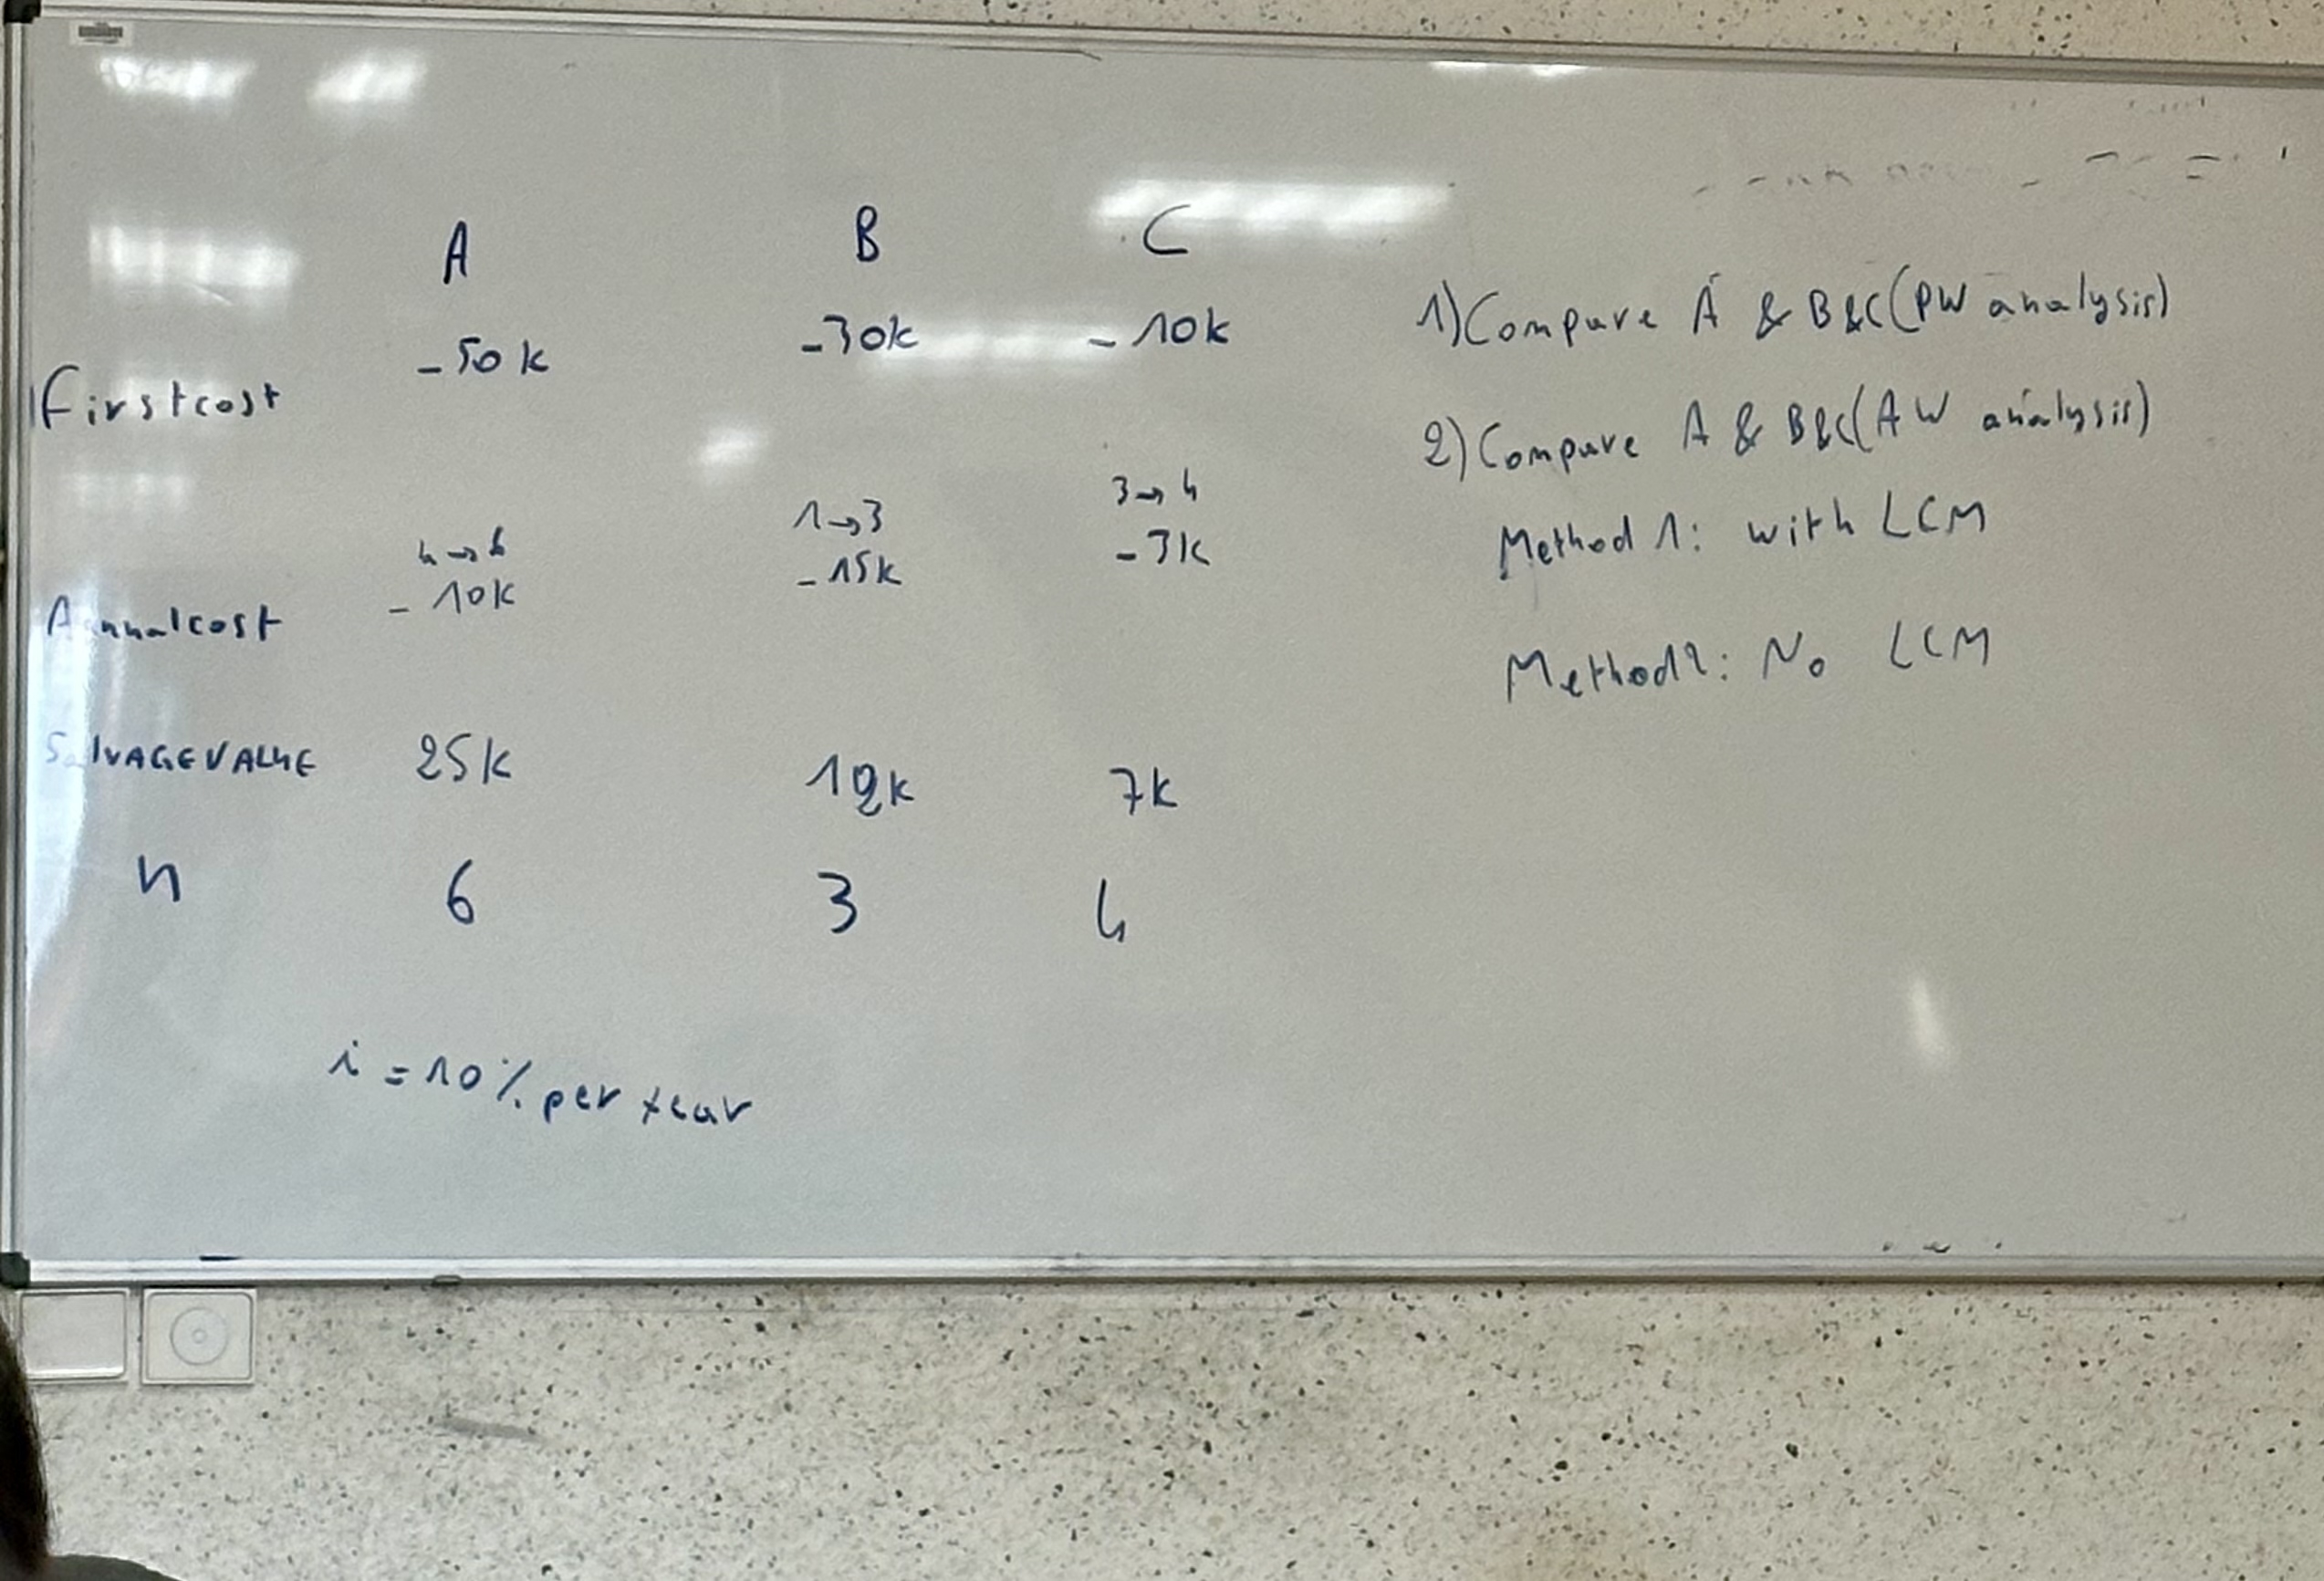 A B C
First cost -50k -30k -10k
4→6 1→3 3→4
Annual cost -10k -15k -3k
SalVAGE VALUE 25k 12k 7k
n 6 3 4
i = 10% per year
1) Compare A & B & C (PW analysis)
2) Compare A & B & C (AW analysis)
Method 1: with LCM
Method 2: No LCM